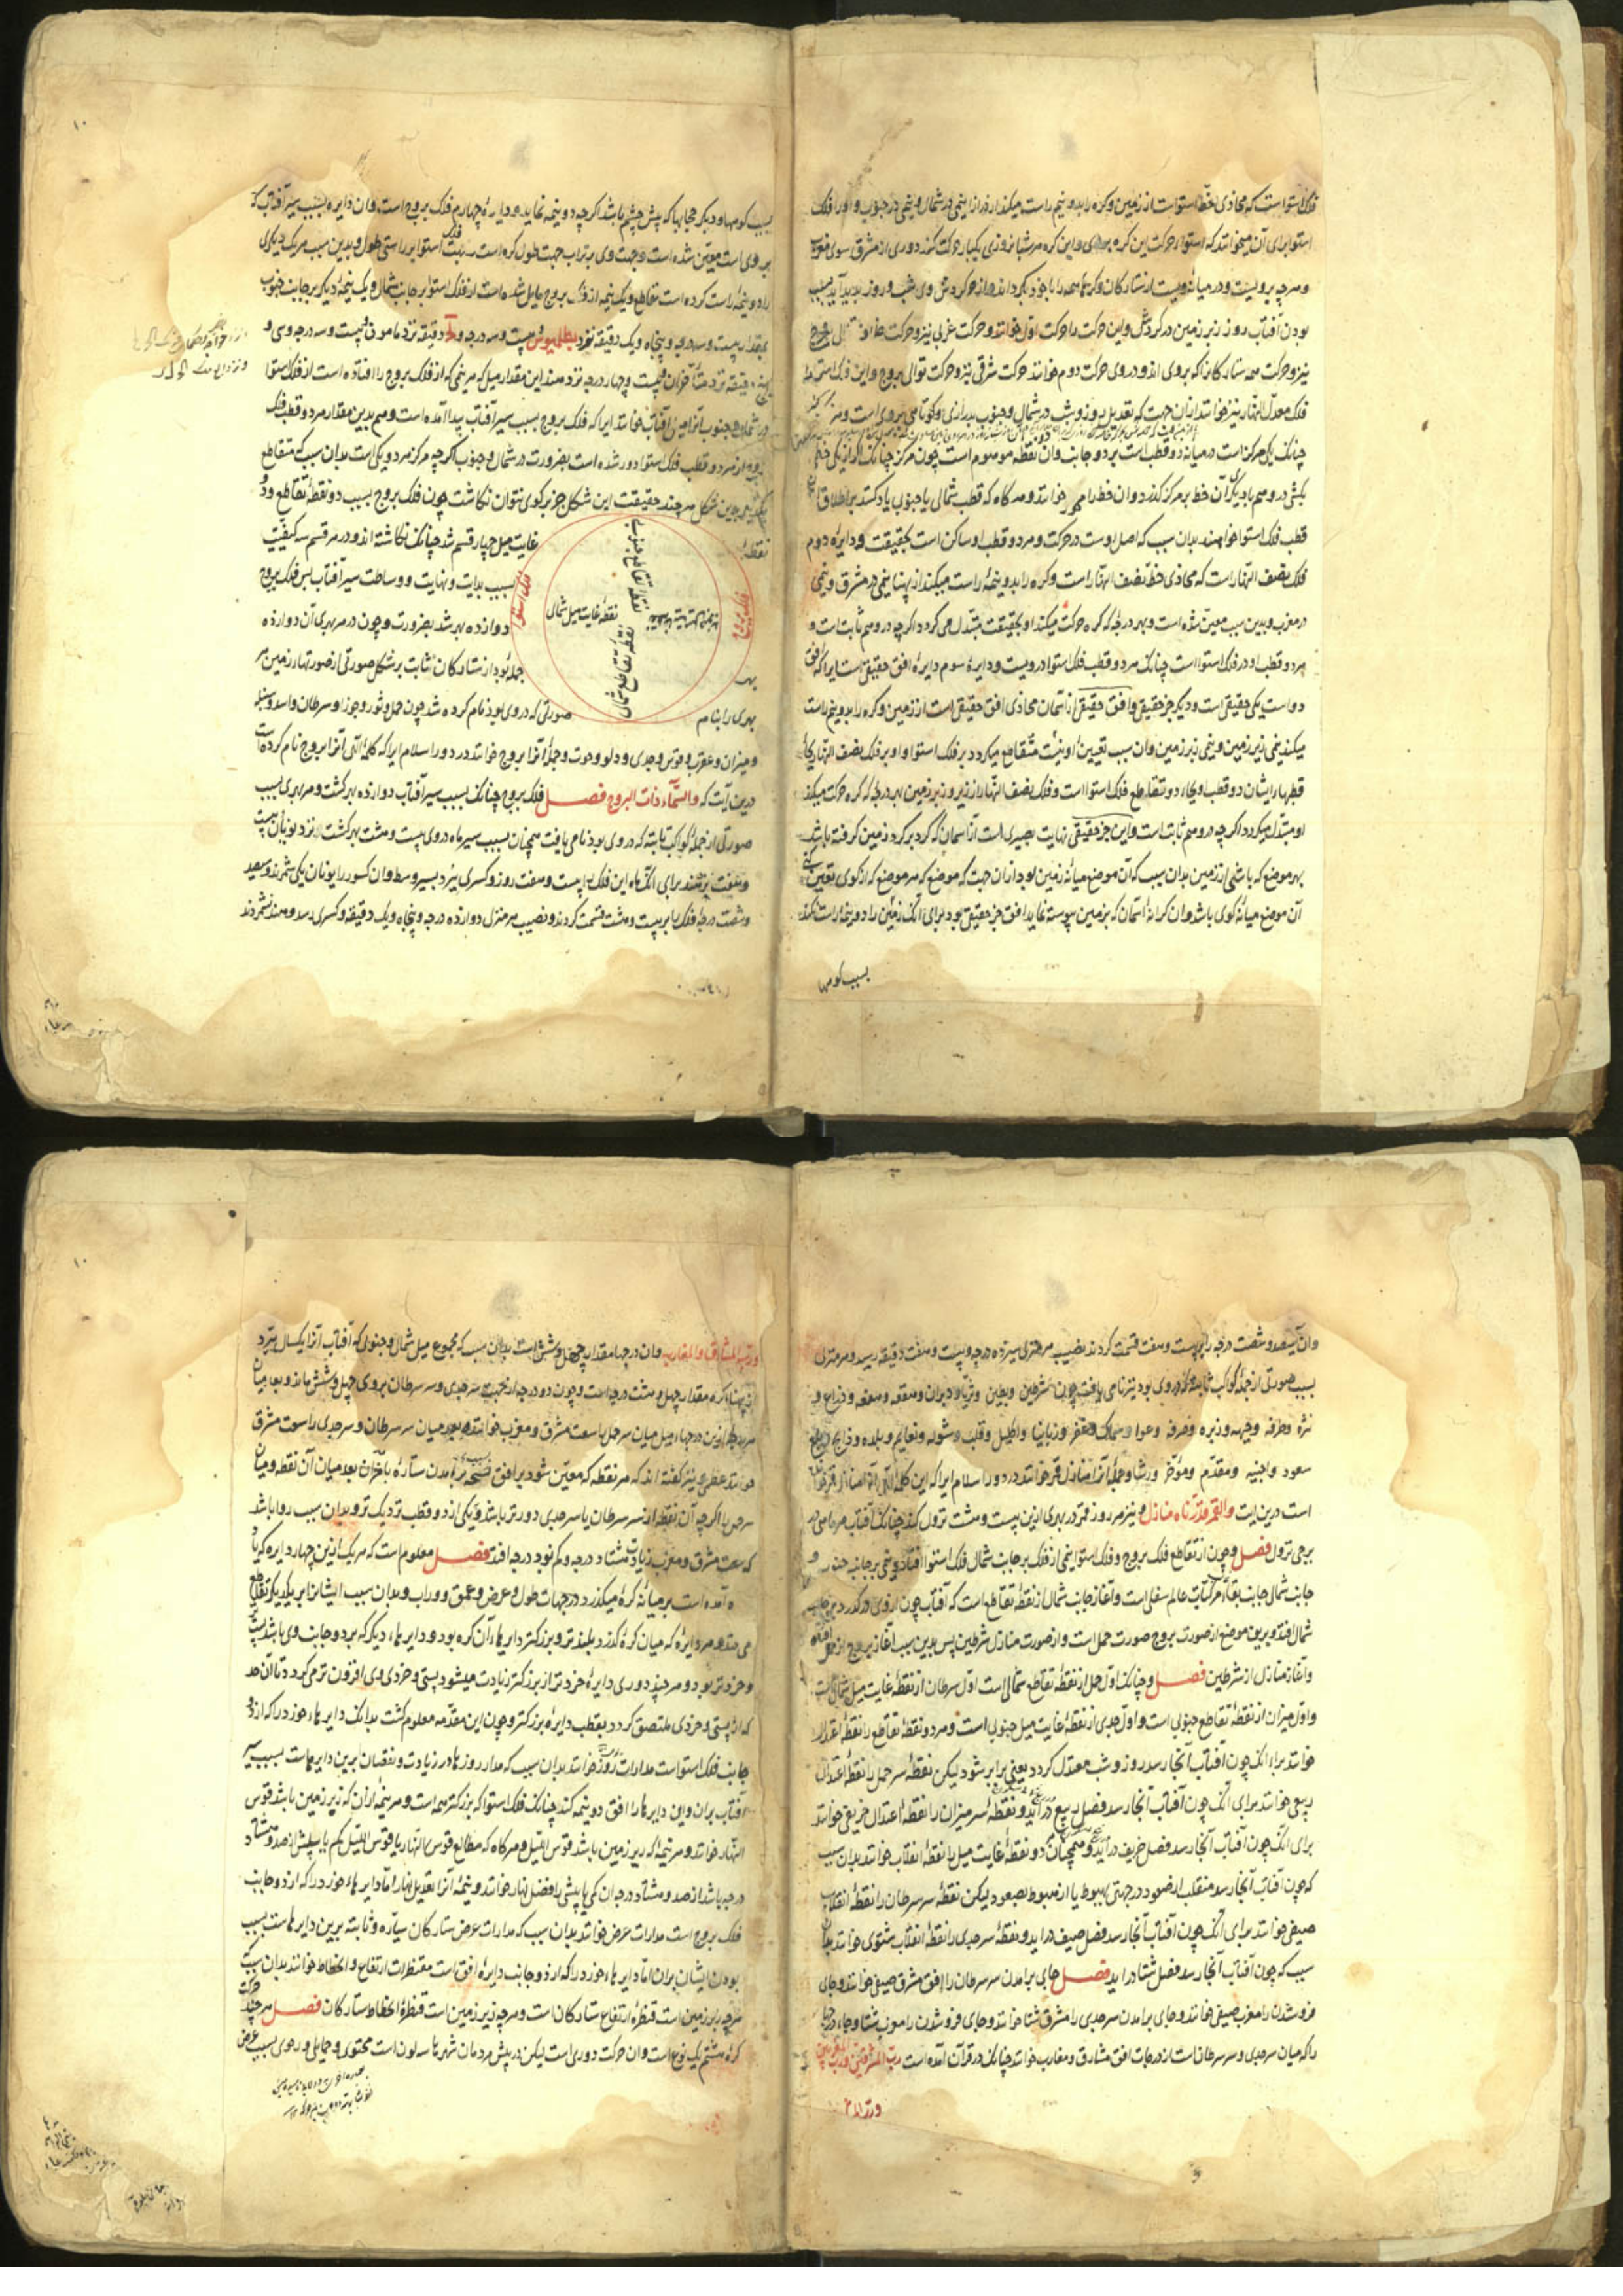 فلک استواست که محاذی خط استواست از زمین و کره را بدو نیم راست میکند از درازا نیمی در شمال و نیمی در جنوب و او را فلک
استوا برای آن میخوانند که استواء حرکت این کره بروی و این کره هر شبانروزی یکبار حرکت کند دوری از مشرق سوی مغرب
و هرچه برویست و در میانه ویست از ستارکان و کرها همه را با خود بکرداند و از حرکت وی شب و روز پدید آید بسبب
بودن آفتاب روز زبر زمین در کردش و این حرکت را حرکت اول خوانند و حرکت غربی نیز و حرکت
نیز و حرکت همه ستارکان را که بروی اند و در وی حرکت دوم خوانند حرکت شرقی نیز و حرکت توالی بروج و این فلک استوا را
فلک معدل النهار نیز خوانند از ان جهت که تعدیل روز و شب در شمال و جنوب بدرازی و کوتاهی بروی است و مرکز
چنانک یکی مرکز است در میانه دو قطب است بر دو جانب وان نقطه موهوم است چون مرکز چنانک اگر از یکی خط
بکشی در وهم بدیکر آن خط بر مرکز کذرد وان خط را محور خوانند و هر کاه که قطب شمالی یا جنوبی یاد کنند بر اطلاق
قطب فلک استوا خواهند بدان سبب که اصل اوست در حرکت و هر دو قطب او ساکن است بحقیقت و دایره دوم
فلک نصف النهار است که محاذی خط نصف النهار است و کره را بدو نیمه راست میکند از پهنا نیمی در مشرق و نیمی
در مغرب و بدین سبب معین شده است و بهر درجه که کره حرکت میکند او بحقیقت متبدل می کردد اکرچه در وهم ثابت است و
هر دو قطب او در فلک استوا است چنانک هر دو قطب فلک استوا در ویست و دایره سوم دایره افق حقیقی است ایرا که افق
دو است یکی حقیقی است و دیکر جز حقیقی و افق حقیقی از آسمان محاذی افق حقیقی است از زمین و کره را بدو نیم راست
میکند نیمی زیر زمین و نیمی زبر زمین وان سبب تعیین اوست متقاطع میکردد بر فلک استوا و او بر فلک نصف النهار بجای
قطبها را ایشان دو قطب و بجاء دو تقاطع فلک استوا است و فلک نصف النهار را زیر و زبر زمین بهر درجه که کره حرکت میکند
او متبدل میکردد اکرچه در وهم ثابت است و این جز حقیقی نهایت بصیری است از آسمان که کرد بر کرد زمین کرفته باشد
بهر موضع که باشی از زمین بدان سبب که آن موضع میانه زمین بود از ان جهت که موضع که هر موضع که از کوی تعیین کنی
آن موضع میانه کوی باشد وان کرانه آسمان که بزمین پیوسته نماید افق جز حقیقی بود برای آنک زمین را دو نیمه راست نکند
بسبب کوهها
بسبب کوهها و دیکر حجابها که پیش چشم باشد اکرچه دو نیمه نماید و دایره چهارم فلک بروج است وان دایره بسبب سیر آفتاب که
بروی است معین شده است و جهت وی برتراب جهت طول کره است نسبت فلک استوا بر راستی طول و بدین سبب هر یک دیکری
را دو نیمه راست کرده است تقاطع و یک نیمه از فلک بروج مایل شده است از فلک استوا بر جانب شمال و یک نیمه دیکر بر جانب جنوب
بمقدار بیست و سه درجه و پنجاه و یک دقیقه نزد بطلمیوس و بیست و سه درجه و دقیقه نزد مامون و بیست و سه درجه و سی و
پنج دقیقه نزد متاخران و بیست و چهار درجه نزد هند این مقدار میل که هر نیمی که از فلک بروج را افتاده است از فلک استوا
در شمال و جنوب آنرا میل آفتاب خوانند ایرا که فلک بروج بسبب سیر آفتاب پیدا آمده است و هم بدین مقدار هر دو قطب فلک
بروج از هر دو قطب فلک استوا دور شده است بضرورت در شمال و جنوب اکرچه مرکز هر دو یکی است بدان سبب که متقاطع
یکدیکرند بدین شکل هر چند حقیقت این شکل جز بر کوی نتوان نکاشت چون فلک بروج بسبب دو نقطه تقاطع و دو
نقطه غایت میل چهار قسم شد چنانک نکاشته اند و در هر قسم سه کیفیت
بسبب بدایت و نهایت و وساطت سیر آفتاب پس فلک بروج
دوازده بهر شد بضرورت و چون در هر بهری آن دوازده
بهر جمله بود از ستارکان ثابت بر شکل صورتی از صورتها زمین هر
بهری را بنام صورتی که در وی بود نام کرده شد چون حمل و ثور و جوزا و سرطان و اسد و سنبله
و میزان و عقرب و قوس و جدی و دلو و حوت و جمله آنرا بروج خوانند در دور اسلام ایرا که کلمه الهی آنرا بروج نام کرده است
درین آیت که والسماء ذات البروج فصل فلک بروج چنانک بسبب سیر آفتاب دوازده بهر کشت و هر بهری بسبب
صورتی از جمله کواکب ثابته که در وی بود نامی یافت همچنان بسبب سیر ماه در وی بیست و هشت بهر کشت نزد یونان بیست
و هفت نزد هند برای آنک ماه این فلک را بیست و هفت روز و کسری ببرد بسیر وسط وان کسور را یونان یکی شمردند و سیصد
و شصت درجه فلک را بر بیست و هشت قسمت کردند و نصیب هر منزل دوازده درجه و پنجاه و یک دقیقه و کسری رسد و هند نشمردند
فلک بروج
فلک استوا
نقطه تقاطع جنوبی
نقطه غایت میل شمالی
نقطه تقاطع شمالی
۱۰
وان سیصد و شصت درجه را بر بیست و هفت قسمت کردند نصیب هر منزلی سیزده درجه و بیست و هفت دقیقه رسید و هر منزلی
بسبب صورتی از جمله کواکب ثابته که در وی بود نیز نامی یافت چون شرطین و بطین و ثریا و دبران و هقعه و هنعه و ذراع و
نثره و طرفه و جبهه و زبره و صرفه و عوا و سماک و غفر و زبانیا و اکلیل و قلب و شوله و نعایم و بلده و ذابح و بلع
سعود و اخبیه و مقدم و موخر و رشا و جمله آنرا منازل قمر خوانند در دور اسلام ایرا که این کلمه الهی آنرا منازل قمر خوانده
است درین آیت والقمر قدرناه منازل و نیز هر روز قمر در بهری ازین بیست و هشت نزول کند چنانک آفتاب هر ماهی در
برجی نزول فصل و چون از تقاطع فلک بروج و فلک استوا نیمی از فلک بر جانب شمال فلک استوا افتاد و نیمی بر جانب جنوب و
جانب شمال جانب بقاء مرکبات عالم سفلی است و آغاز جانب شمال از نقطه تقاطع است که آفتاب چون از وی در کذرد بر جانب
شمال افتد و برین موضع از صورت بروج صورت حمل است و از صورت منازل شرطین پس بدین سبب آغاز بروج از حمل افتاد
و آغاز منازل از شرطین فصل و چنانک اول حمل از نقطه تقاطع شمالی است اول سرطان از نقطه غایت میل شمالی است
و اول میزان از نقطه تقاطع جنوبی است و اول جدی از نقطه غایت میل جنوبی است و هر دو نقطه تقاطع را نقطه اعتدال
خوانند برای آنک چون آفتاب آنجا رسد روز و شب معتدل کردد یعنی برابر شود لیکن نقطه سر حمل را نقطه اعتدال
ربیعی خوانند برای آنک چون آفتاب آنجا رسد فصل ربیع در آید و نقطه سر میزان را نقطه اعتدال خریفی خوانند
برای آنک چون آفتاب آنجا رسد فصل خریف در آید و همچنان دو نقطه غایت میل را نقطه انقلاب خوانند بدان سبب
که چون آفتاب آنجا رسد منقلب از صعود در جهتی بهبوط یا از هبوط بصعود لیکن نقطه سر سرطان را نقطه انقلاب
صیفی خوانند برای آنک چون آفتاب آنجا رسد فصل صیف در آید و نقطه سر جدی را نقطه انقلاب شتوی خوانند بدان
سبب که چون آفتاب آنجا رسد فصل شتا در آید فصل جای برآمدن سر سرطان را افق مشرق صیفی خوانند و جای
فروشدن را مغرب صیفی خوانند و جای برآمدن سر جدی را مشرق شتا خوانند و جای فروشدن را مغرب شتا و جاء درجها
را که میان سر جدی و سر سرطان است از درجات افق مشارق و مغارب خوانند چنانک در قرآن آمده است رب المشرقین ورب المغربین
ورب المشارق والمغارب وان درجها مقدار چهل و شش است بدان سبب که مجموع میل شمال و جنوبی که آفتاب آنرا یکسال ببرد
از پهنا کره مقدار چهل و هشت درجه است و چون دو درجه از جهت سر جدی و سر سرطان بروی چهل و شش ماند و بعد میان
هر درجه ازین درجها و میان سر حمل را سعت مشرق و مغرب خوانند و بعد میان سر سرطان و سر جدی را سعت مشرق
خوانند عظمی و نیز کفته اند که هر نقطه که معین شود بر افق برآمدن ستاره یا جز آن بعد میان آن نقطه و میان
سر حمل اکرچه آن نقطه از سر سرطان یا سر جدی دورتر باشد و یکی از دو قطب نزدیک تر و بدان سبب روا باشد
که سعت مشرق و مغرب زیادت هشتاد درجه و کم نود درجه افتد فصل معلوم است که هر یک ازین چهار دایره که یاد
آمده است بر میانه کره میکذرد در جهات طول و عرض و عمق و وراب و بدان سبب ایشان بر یکدیکر تقاطع
می دهند و هر دایره که میان کره کذرد بلندتر و بزرکتر دایرها آن کره بود و دایرهاء دیکر که بر دو جانب وی باشد پست
و خردتر بود و هر چند دوری دایره خردتر از بزرکتر زیادت میشود پستی و خردی وی افزون تر می کردد تا آن حد
که از پستی و خردی ملتصق کردد بقطب دایره بزرکتر و چون این مقدمه معلوم کشت بدانک دایرهاء خرد را که از دو
جانب فلک استواست مدارات روز خوانند بدان سبب که مدار روزها در زیادت و نقصان برین دایرهاست بسبب سیر
آفتاب بران و این دایرها را افق دو نیمه کند چنانک فلک استوا که بزرکتر همه است و هر نیمه از ان که زبر زمین باشد قوس
النهار خوانند و هر نیمه که زیر زمین باشد قوس اللیل و هر کاه که مطالع قوس النهار یا قوس اللیل کم یا بیش از صد و هشتاد
درجه باشد از صد و هشتاد درجه ان کمی یا بیشی را فضل نهار خوانند و نیمه آنرا تعدیل نهار اما دایرهاء خرد را که از دو جانب
فلک بروج است مدارات عرض خوانند بدان سبب که مدارات عرض ستارکان سیاره و ثابته برین دایرهاست بسبب
بودن ایشان بران اما دایرهاء خرد را که از دو جانب دایره افق است مقنطرات ارتفاع و انحطاط خوانند بدان سبب که
هرچه زبر زمین است قنطره ارتفاع ستارکان است و هرچه زیر زمین است قنطره انحطاط ستارکان فصل هر چند حرکت
کره هشتم یک نوع است وان حرکت دوری است لیکن در پیش مردمان شهرها سه لون است محتوی و حمایلی و رحوی بسبب عرض
۱۰